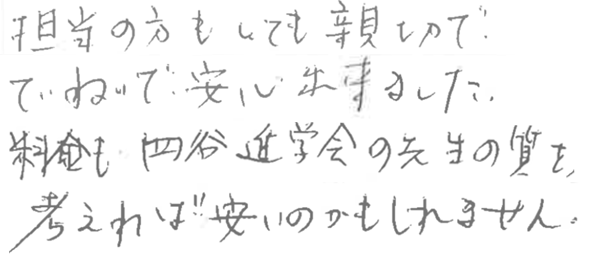 担当の方もとても親切で
ていねいで安心出来ました。
料金も四谷進学会の先生の質を、
考えれば安いのかもしれません。